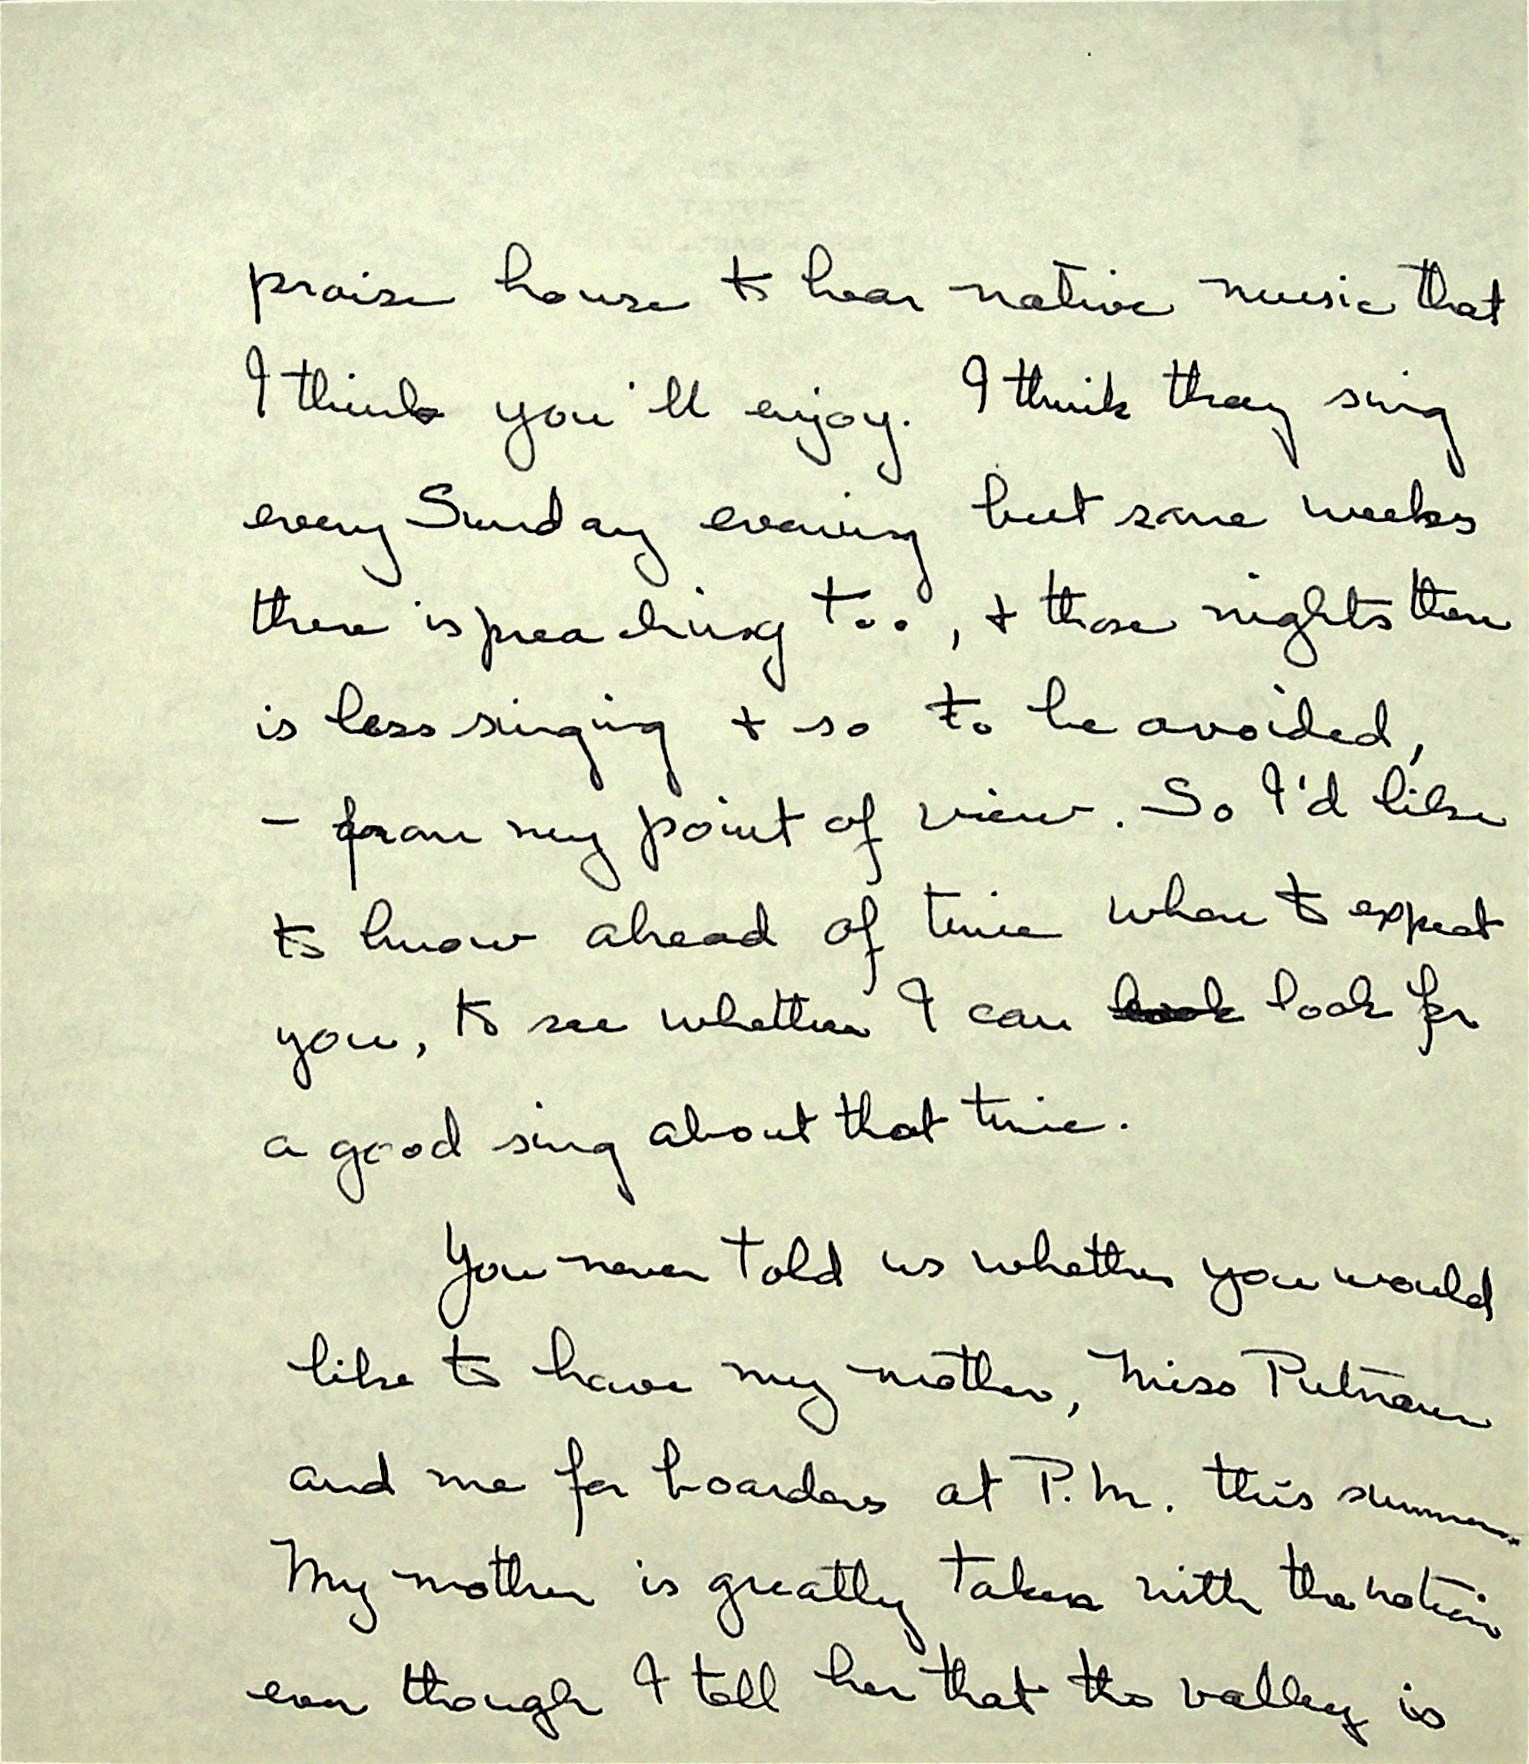 praise house to hear native music that
I think you'll enjoy. I think they sing
every Sunday evening but some weeks
there is preaching too, + those nights there
is less singing + so to be avoided,
- from my point of view. So I'd like
to know ahead of time when to expect
you, to see whether I can look look for
a good sing about that time.
You never told us whether you would
like to have my mother, Miss Putnam
and me for boarders at P.M. this summer.
My mother is greatly taken with the notion
even though I tell her that the valley is